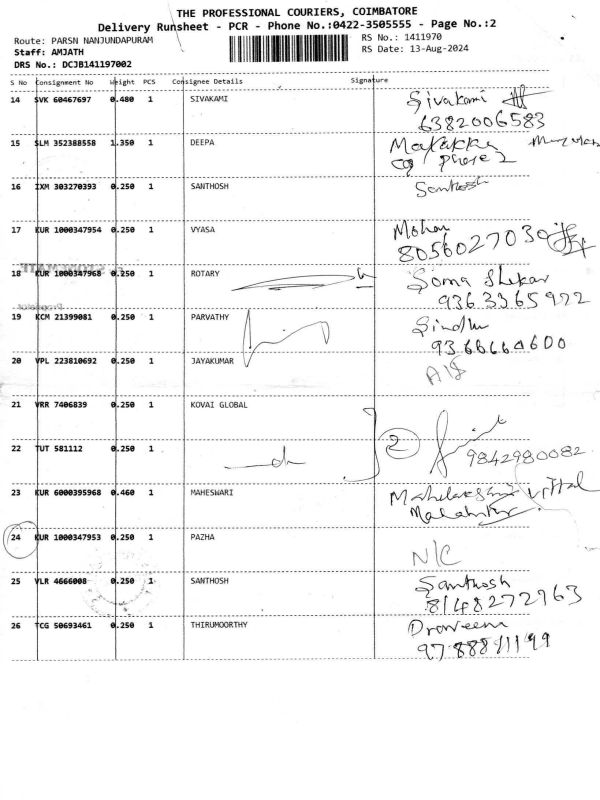 THE PROFESSIONAL COURIERS, COIMBATORE
Delivery Runsheet - PCR - Phone No.:0422-3505555 - Page No.:2
Route: PARSN NANJUNDAPURAM RS No.: 1411970
Staff: AMJATH RS Date: 13-Aug-2024
DRS No.: DCJB141197002
S No Consignment No Weight PCS Consignee Details Signature
14 SVK 60467697 0.480 1 SIVAKAMI Sivakami
6382006583
15 SLM 352388558 1.350 1 DEEPA
Phase 2
16 IXM 303270393 0.250 1 SANTHOSH Santhosh
17 KUR 1000347954 0.250 1 VYASA Mohan
8056027030
18 KUR 1000347968 0.250 1 ROTARY Soma Shekar
9363365972
19 KCM 21399081 0.250 1 PARVATHY Sindhu
9366664600
20 VPL 223810692 0.250 1 JAYAKUMAR A/S
21 VRR 7406839 0.250 1 KOVAI GLOBAL
22 TUT 581112 0.250 1 2 9842980082
23 KUR 6000395968 0.460 1 MAHESWARI
24 KUR 1000347953 0.250 1 PAZHA N/C
25 VLR 4666008 0.250 1 SANTHOSH Santhosh
8148272963
26 TCG 50693461 0.250 1 THIRUMOORTHY Praveena
9788891199